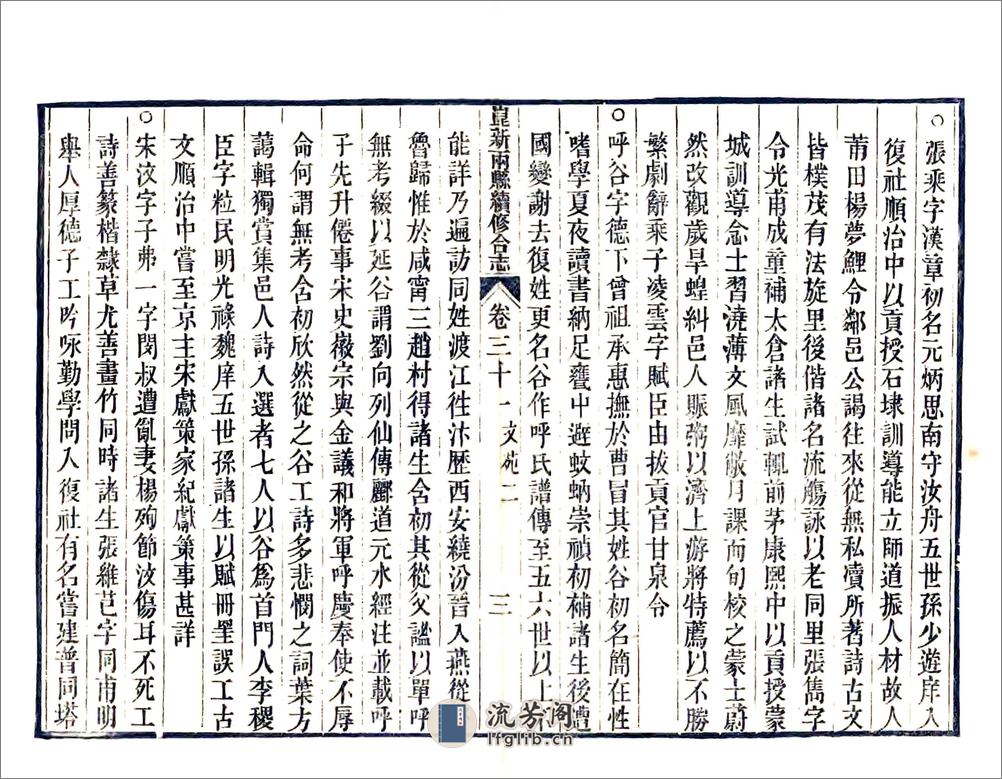 ○張乘字漢章初名元炳思南守汝舟五世孫少遊庠入
復社順治中以貢授石埭訓導能立師道振人材故人
莆田楊夢鯉令鄰邑公謁往來從無私凟所著詩古文
皆樸茂有法旋里後偕諸名流觴詠以老同里張雋字
令光甫成童補太倉諸生試輒前茅康熙中以貢授蒙
城訓導念士習澆薄文風靡敝月課而旬校之蒙士蔚
然改觀歲旱蝗糾邑人賑粥以濟上游將特薦以不勝
繁劇辭乘子凌雲字賦臣由拔貢官甘泉令
○呼谷字德下曾祖承惠撫於曹冒其姓谷初名簡在性
嗜學夏夜讀書納足甕中避蚊蚋崇禎初補諸生後遭
國變謝去復姓更名谷作呼氏譜傳至五六世以上不
崑新兩縣續修合志
卷三十一文苑二
三
能詳乃遍訪同姓渡江徃汴歷西安繞汾晉入燕從
魯歸惟於咸甯三趙村得諸生含初其從父謐以單呼
無考綴以延谷謂劉向列仙傳酈道元水經注並載呼
子先升僊事宋史徽宗與金議和將軍呼慶奉使不辱
命何謂無考含初欣然從之谷工詩多悲憫之詞葉方
藹輯獨賞集邑人詩入選者七人以谷爲首門人李稷
臣字粒民明光祿魏庠五世孫諸生以賦冊罣誤工古
文順治中嘗至京主宋獻策家紀獻策事甚詳
○宋汶字子弗一字閔叔遭亂妻楊殉節汶傷耳不死工
詩善篆楷隸草尤善畫竹同時諸生張維芑字同甫明
舉人厚德子工吟咏勤學問入復社有名嘗建普同塔
流芳阁
lfglib.cn